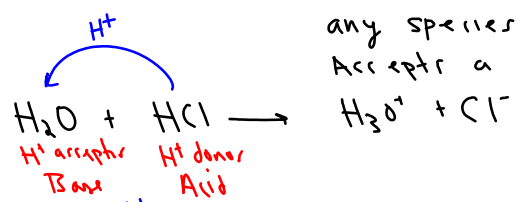 H⁺
any species
Accepts a
H₂O + HCl ⟶ H₃O⁺ + Cl⁻
H⁺ acceptor H⁺ donor
Base Acid